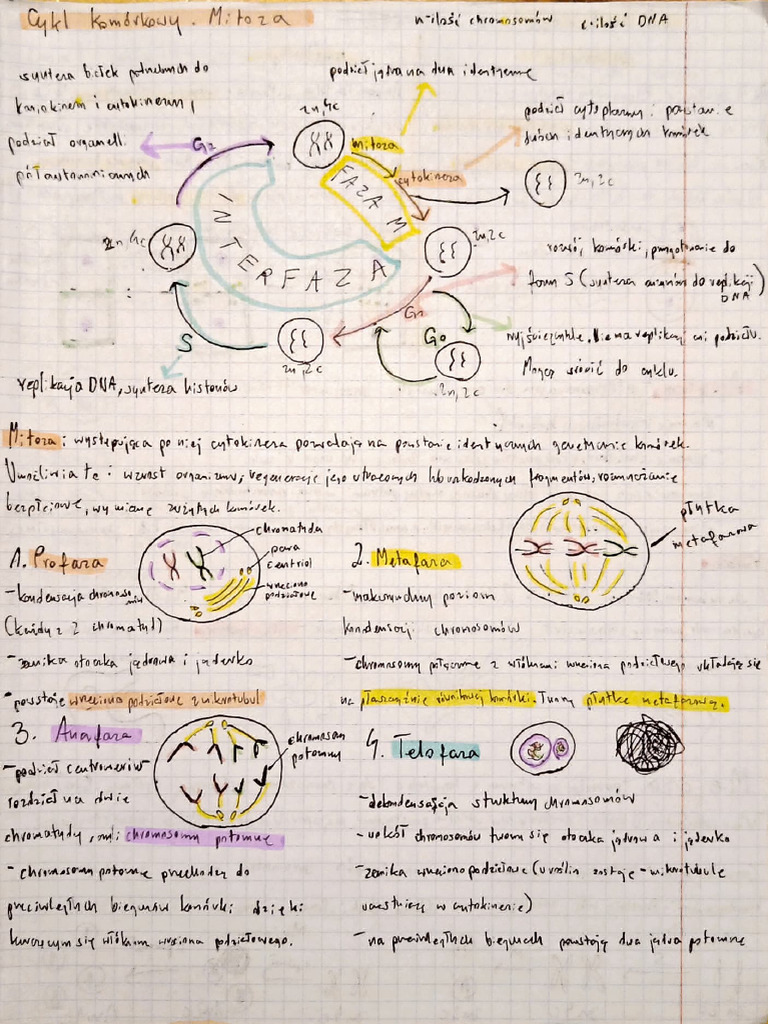 Cykl komórkowy. Mitoza
n-ilość chromosomów c-ilość DNA
synteza białek potrzebnych do
kariokinezy i cytokinezy,
podział organelli
półautonomicznych
podział jądra na dwa identyczne
podział cytoplazmy i powstanie
dwóch identycznych komórek
G2
2n,4c
mitoza
cytokineza
FAZA M
2n,2c
INTERFAZA
2n,4c
2n,2c
rozwój komórki, przygotowanie do
fazy S (synteza enzymów do replikacji
DNA)
G1
G0
wyjście z cyklu. Nie ma replikacji ani podziału.
Mogą wrócić do cyklu.
S
2n,2c
2n,2c
replikacja DNA, synteza histonów
Mitoza i występująca po niej cytokineza pozwalają na powstanie identycznych genetycznie komórek.
Umożliwia to: wzrost organizmu, regenerację jego utraconych lub uszkodzonych fragmentów, rozmnażanie
bezpłciowe, wymianę zużytych komórek.
1. Profaza
chromatyda
para
centriol
wrzeciono
podziałowe
-kondensacja chromosomów
(każdy z 2 chromatyd)
-zanika otoczka jądrowa i jąderko
-powstaje wrzeciono podziałowe z mikrotubul
2. Metafaza
płytka
metafazowa
-maksymalny poziom
kondensacji chromosomów
-chromosomy połączone z włóknami wrzeciona podziałowego układają się
na płaszczyźnie równikowej komórki. Tworzą płytkę metafazową.
3. Anafaza
chromosom
potomny
-podział centromerów
rozdział na dwie
chromatydy, czyli chromosomy potomne
-chromosomy potomne przechodzą do
przeciwległych biegunów komórki dzięki
kurczącym się włóknom wrzeciona podziałowego.
4. Telofaza
-dekondensacja struktury chromosomów
-wokół chromosomów tworzy się otoczka jądrowa i jąderko
-zanika wrzeciono podziałowe (u roślin zostaje - mikrotubule
uczestniczą w cytokinezie)
-na przeciwległych biegunach powstają dwa jądra potomne